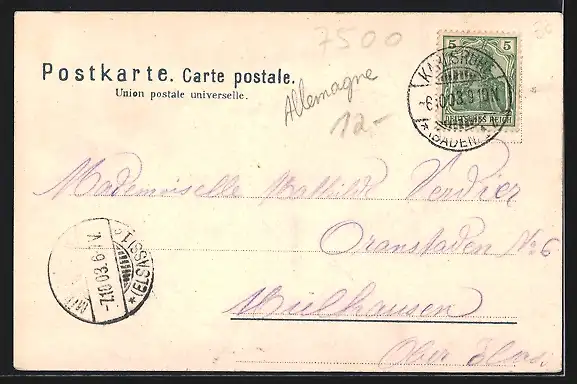 7500
Postkarte. Carte postale.
Union postale universelle.
Allemagne
12.-
5 5
DEUTSCHES REICH
KARLSRUHE
-6.10.03.9-10N.
*(BADEN)
Mademoiselle Mathilde Verdier
Oranstaden No 6
Mülhausen
Ober Elsass
-7.10.03.6-7V.
*(ELSASS)1